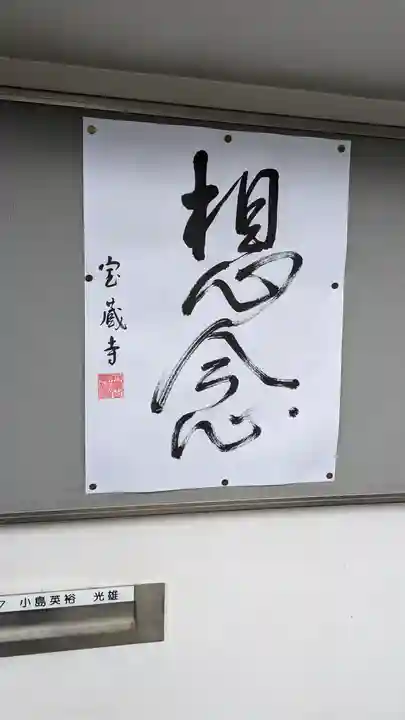 想念
宝蔵寺
ク 小島英裕 光雄